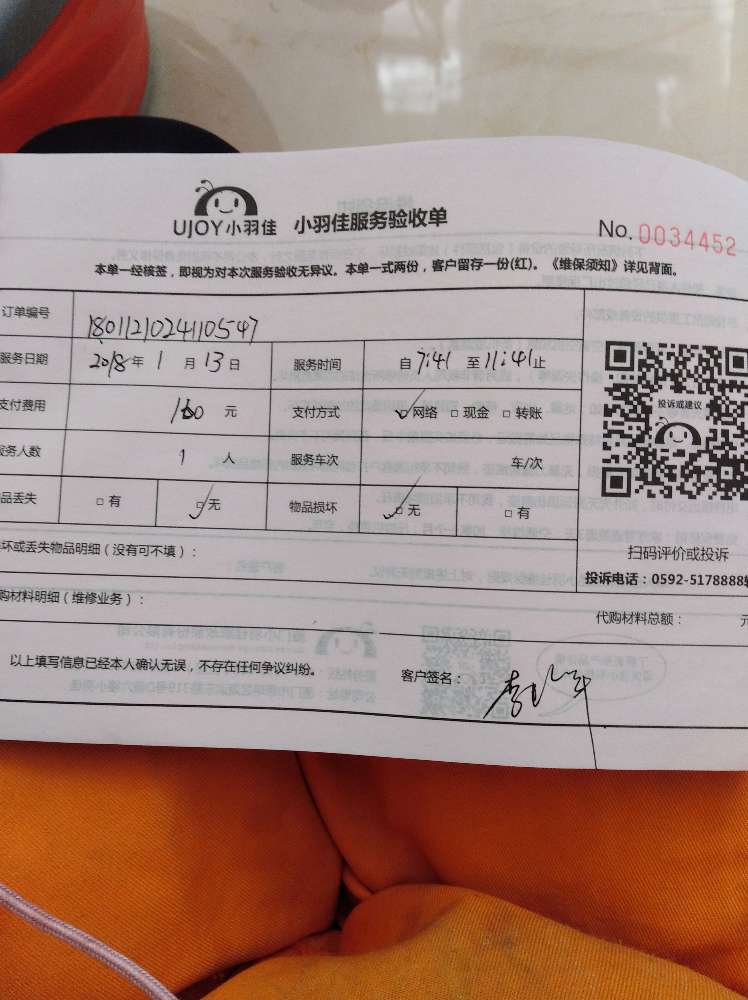 UJOY小羽佳 小羽佳服务验收单 No. 0034452
本单一经核签，即视为对本次服务验收无异议。本单一式两份，客户留存一份(红)。《维保须知》详见背面。
订单编号 1801121024110547
服务日期 2018年 1 月 13 日 服务时间 自 7:41 至 11:41止
支付费用 160 元 支付方式 □网络 □现金 □转账
投诉或建议
服务人数 1 人 服务车次 车/次
品丢失 □有 □无 物品损坏 □无 □有
坏或丢失物品明细（没有可不填）：
扫码评价或投诉
投诉电话：0592-5178888转
购材料明细（维修业务）：
代购材料总额： 元
以上填写信息已经本人确认无误，不存在任何争议纠纷。 客户签名：